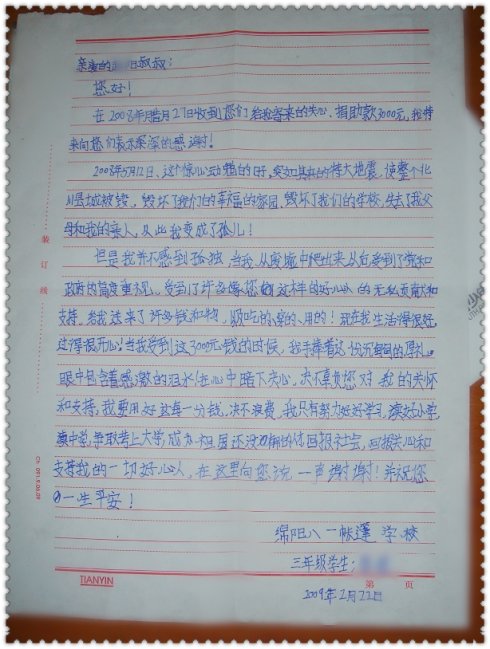 亲爱的 叔叔:
您好!
在2008年腊月27日收到您们给我寄来的关心、捐助款3000元,我特
来向您们表示深深的感谢!
2008年5月12日,这个惊心动魄的日子,突如其来的特大地震,使整个北
川县城被毁,毁坏了我们的幸福的家园,毁坏了我们的学校,失去了我父
母和我的亲人,从此我变成了孤儿!
但是我并不感到孤独,当我从废墟中爬出来从后受到了党和
政府的高度重视。受到了许多像您们这样的好心人的无私贡献和
支持,给我送来了许多钱和物,吸吃的穿的、用的!现在我生活得很好,
过得很开心!当我受到这3000元钱的时候,我手捧着这份沉甸甸的厚礼。
眼中包含着感激的泪水!在心中暗下关心,决不辜负您对我的关怀
和支持,我要用好这每一分钱,决不浪费,我只有努力好好学习,读好小学,
读中学,争取考上大学,成为祖国 的 回报社会,回报关心和
支持我的一切好心人,在这里向您说一声谢谢!并祝您
们一生平安!
绵阳八一帐蓬学校
三年级学生:
2009年2月22日
装订线
TIANYIN
第 页